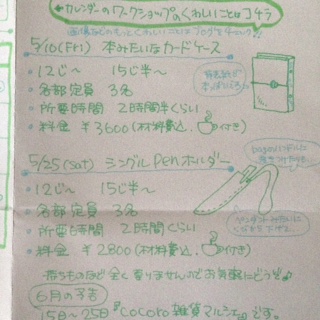 カレンダーのワークショップのくわしいことはコチラ
5/10(Fri) 本みたいなカードケース
・12じ〜 15じ半〜
・各部定員 3名
・所要時間 2時間半くらい
・料金 ¥3600(材料費込、付き)
5/25(sat) シングルpenホルダー
・12じ〜 15じ半〜
・各部定員 3名
・所要時間 2時間くらい
・料金 ¥2800(材料費込、付き)
持ちものなど全く要りませんのでお気軽にどうぞ♪
6月の予告
15日〜25日『Cocoro雑貨マルシェ』です。